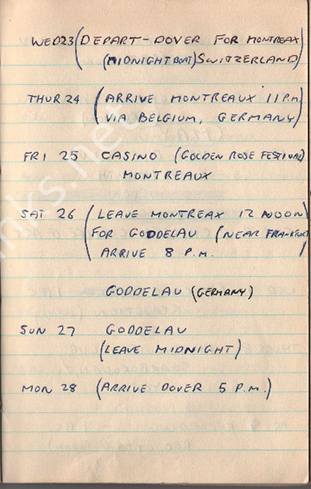 WED 23 (DEPART - DOVER FOR MONTREAX
(MIDNIGHT BOAT) SWITZERLAND)
THUR 24 (ARRIVE MONTREAUX 11 P.M
VIA BELGIUM, GERMANY)
FRI 25 CASINO (GOLDEN ROSE FESTIVAL)
MONTREAUX
SAT 26 (LEAVE MONTREAX 12 NOON
FOR GODDELAU (NEAR FRANKFURT)
ARRIVE 8 P.M. )
GODDELAU (GERMANY)
SUN 27 GODDELAU
(LEAVE MIDNIGHT)
MON 28 (ARRIVE DOVER 5 P.M.)